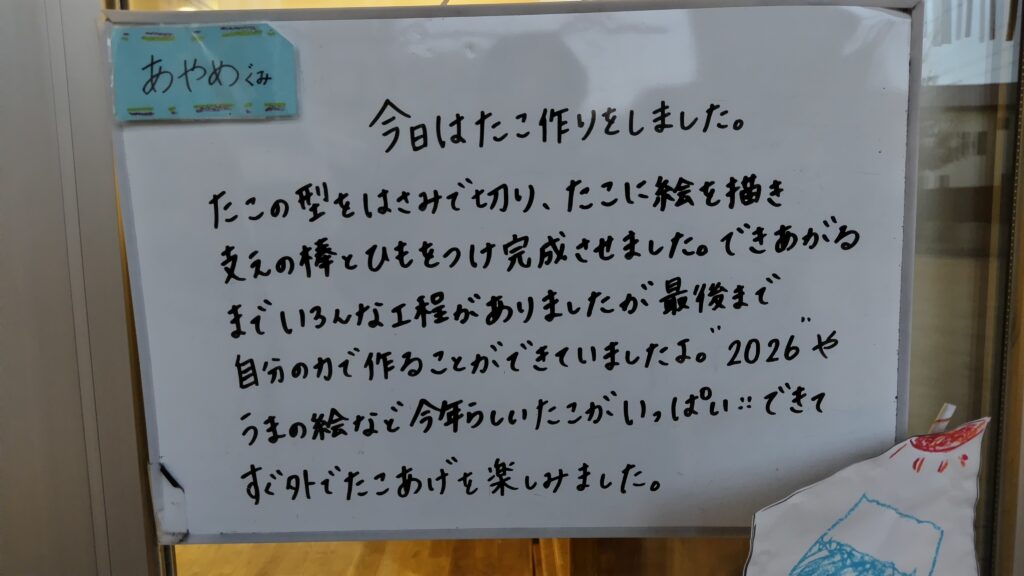 あやめぐみ
今日はたこ作りをしました。
たこの型をはさみで切り、たこに絵を描き
支えの棒とひもをつけ完成させました。できあがる
までいろんな工程がありましたが最後まで
自分の力で作ることができていましたよ。"2026"や
うまの絵など今年らしいたこがいっぱい!!できて
すぐ外でたこあげを楽しみました。